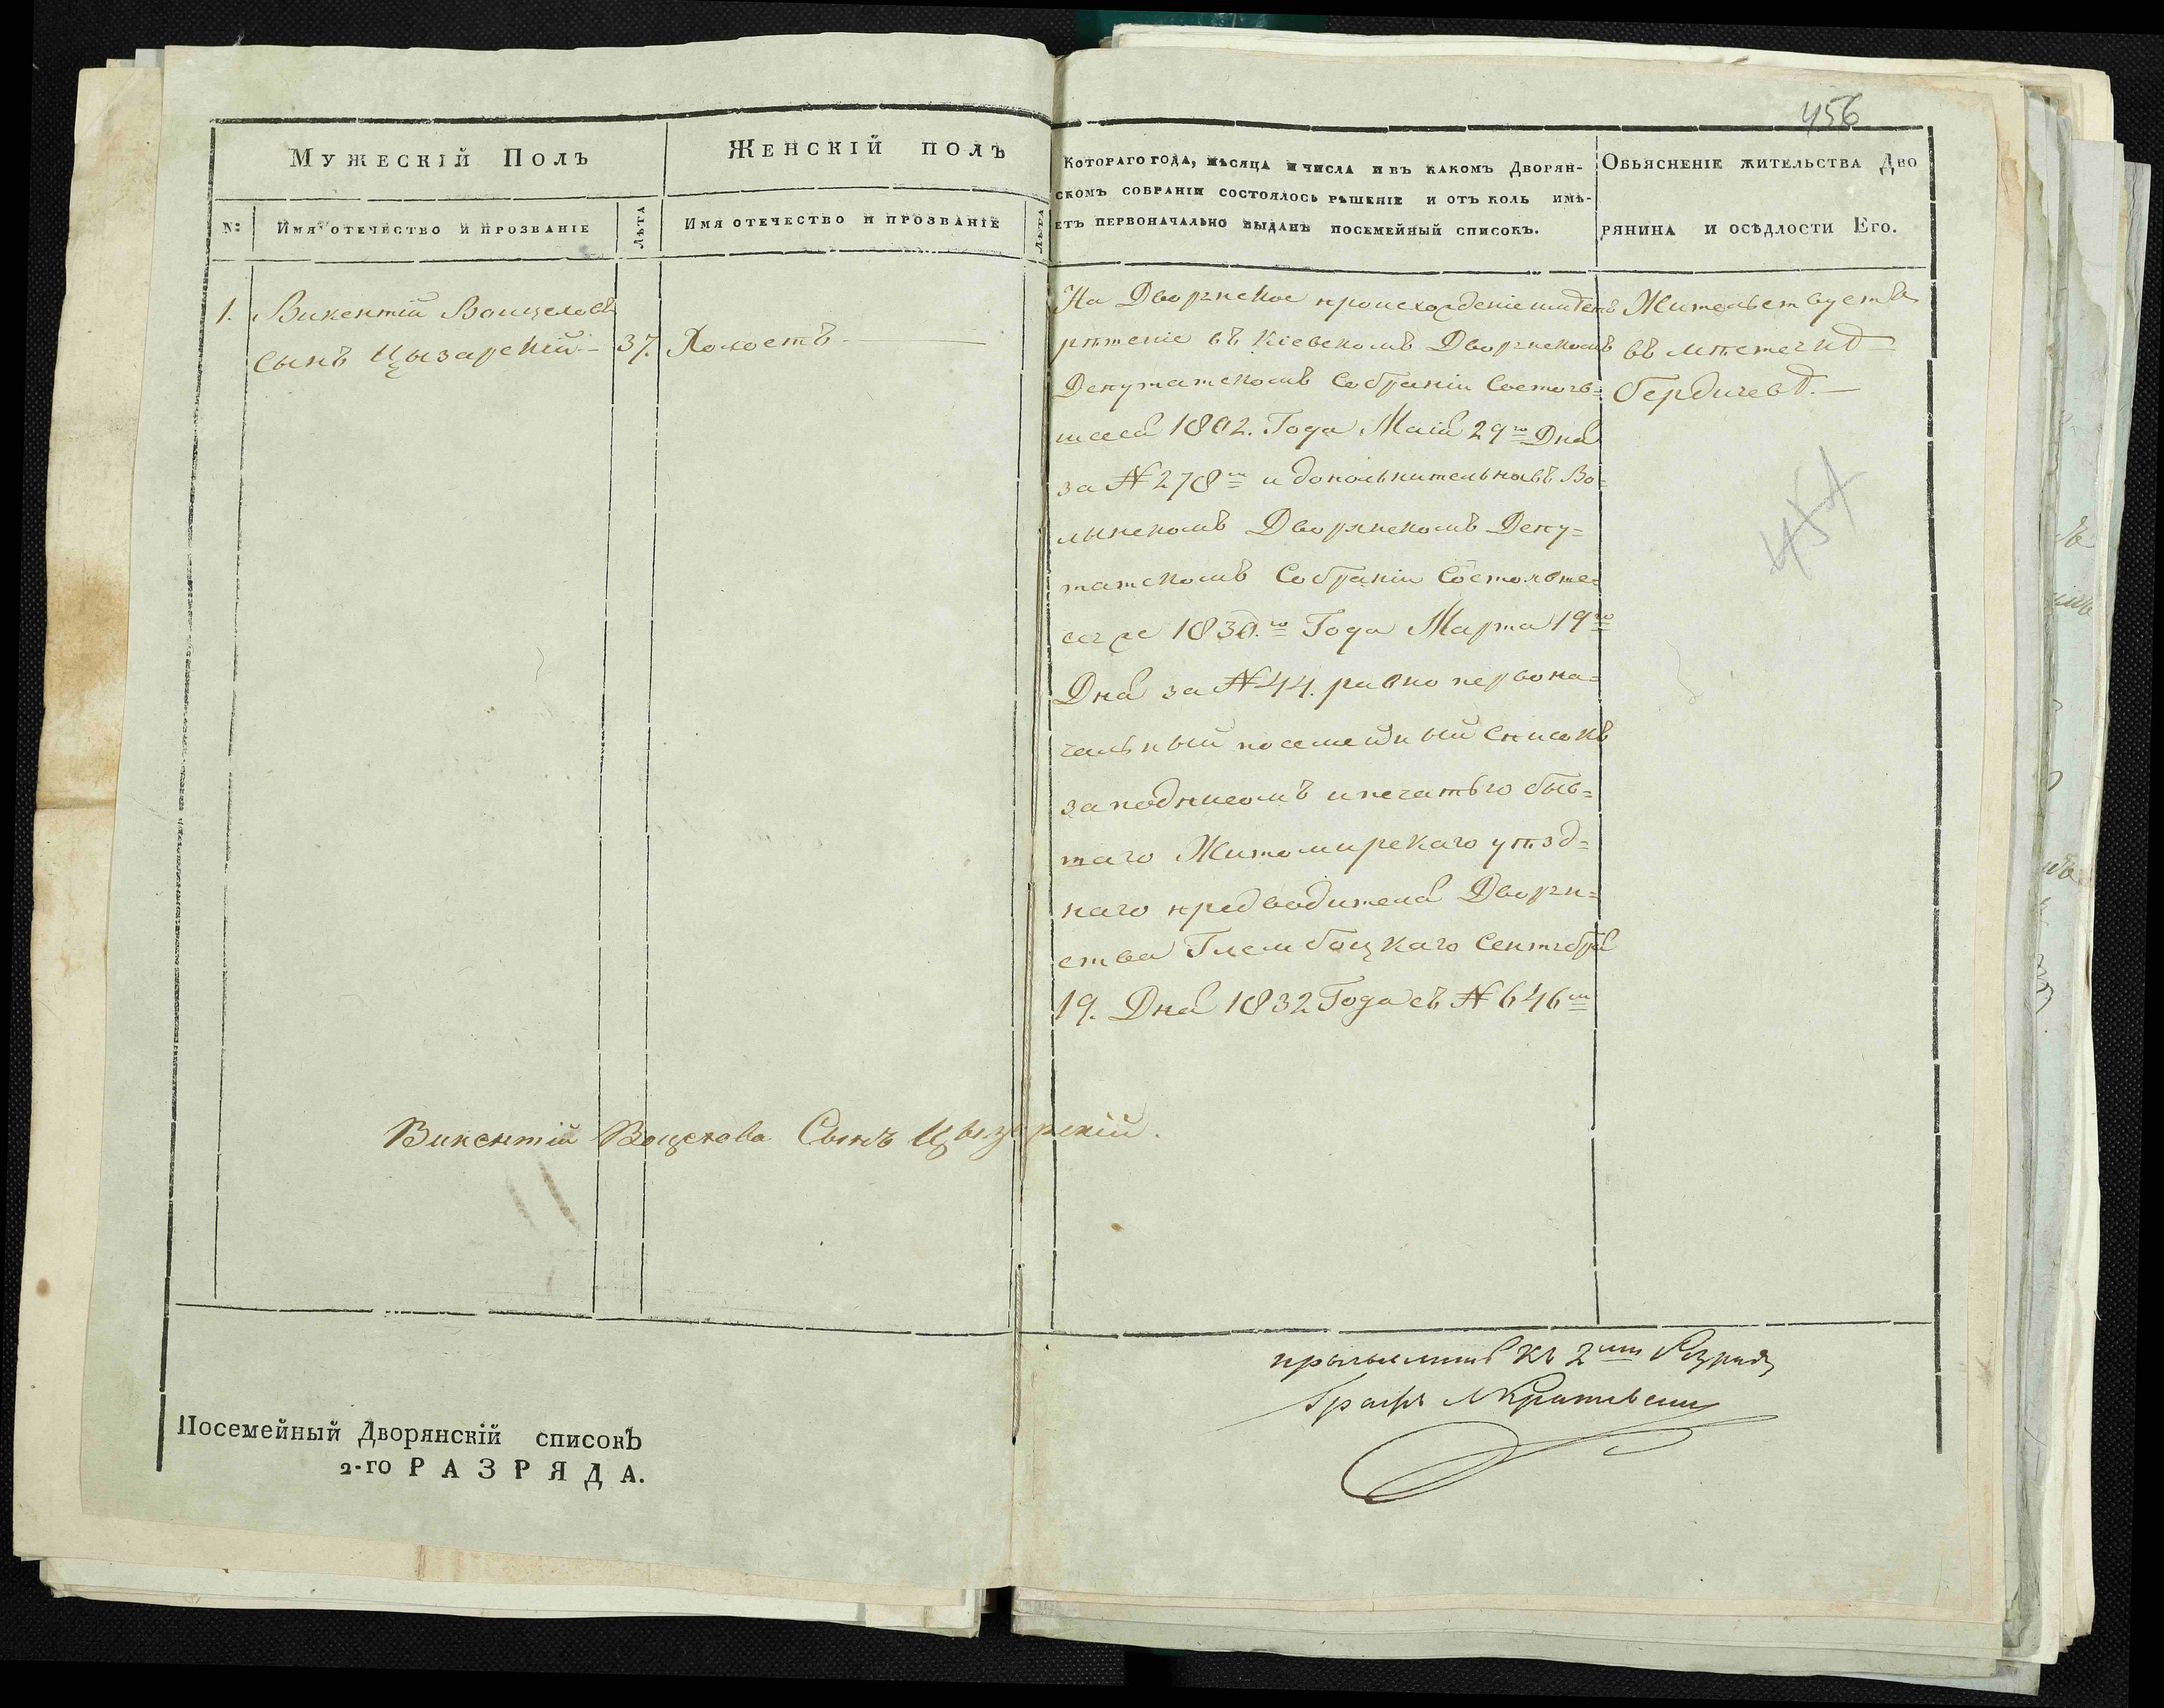 456
Мужескій Полъ
Женскій полъ
Котораго года, мѣсяца и числа и въ какомъ Дворян-
скомъ собраніи состоялось рѣшеніе и отъ коль имѣ-
етъ первоначально выданъ посемейный списокъ.
Обьясненіе жительства Дво
рянина и осѣдлости Его.
№:
Имя отечество и прозваніе
Лѣта
Имя отечество и прозваніе
Лѣта
1. Викентій Войцеховъ
сынъ Цызарскій 37.
Холостъ
На Дворянское происхожденіе имѣетъ
рѣшеніе въ Кіевскомъ Дворянскомъ
Депутатскомъ Собраніи Состояв=
шееся 1802. Года Маія 29го Дня
за № 278м и допольнительно въ Во=
лынскомъ Дворянскомъ Депу=
татскомъ Собраніи Состоявше=
еся 1830.го Года Марта 19го
Дня за № 44. равно первона=
чальный посемейный списокъ
за подписомъ и печатью быв=
шаго Житомирскаго уѣзд=
наго предводителя Дворян=
ства Глембоцкаго Сентября
19. Дня 1832 Года съ № 646м
Жительствуетъ
въ мѣстечкѣ
Бердичевѣ.
Викентій Войцехова Сынъ Цызарскій.
Посемейный Дворянскій списокъ
2-го РАЗРЯДА.
къ 2му
Графъ